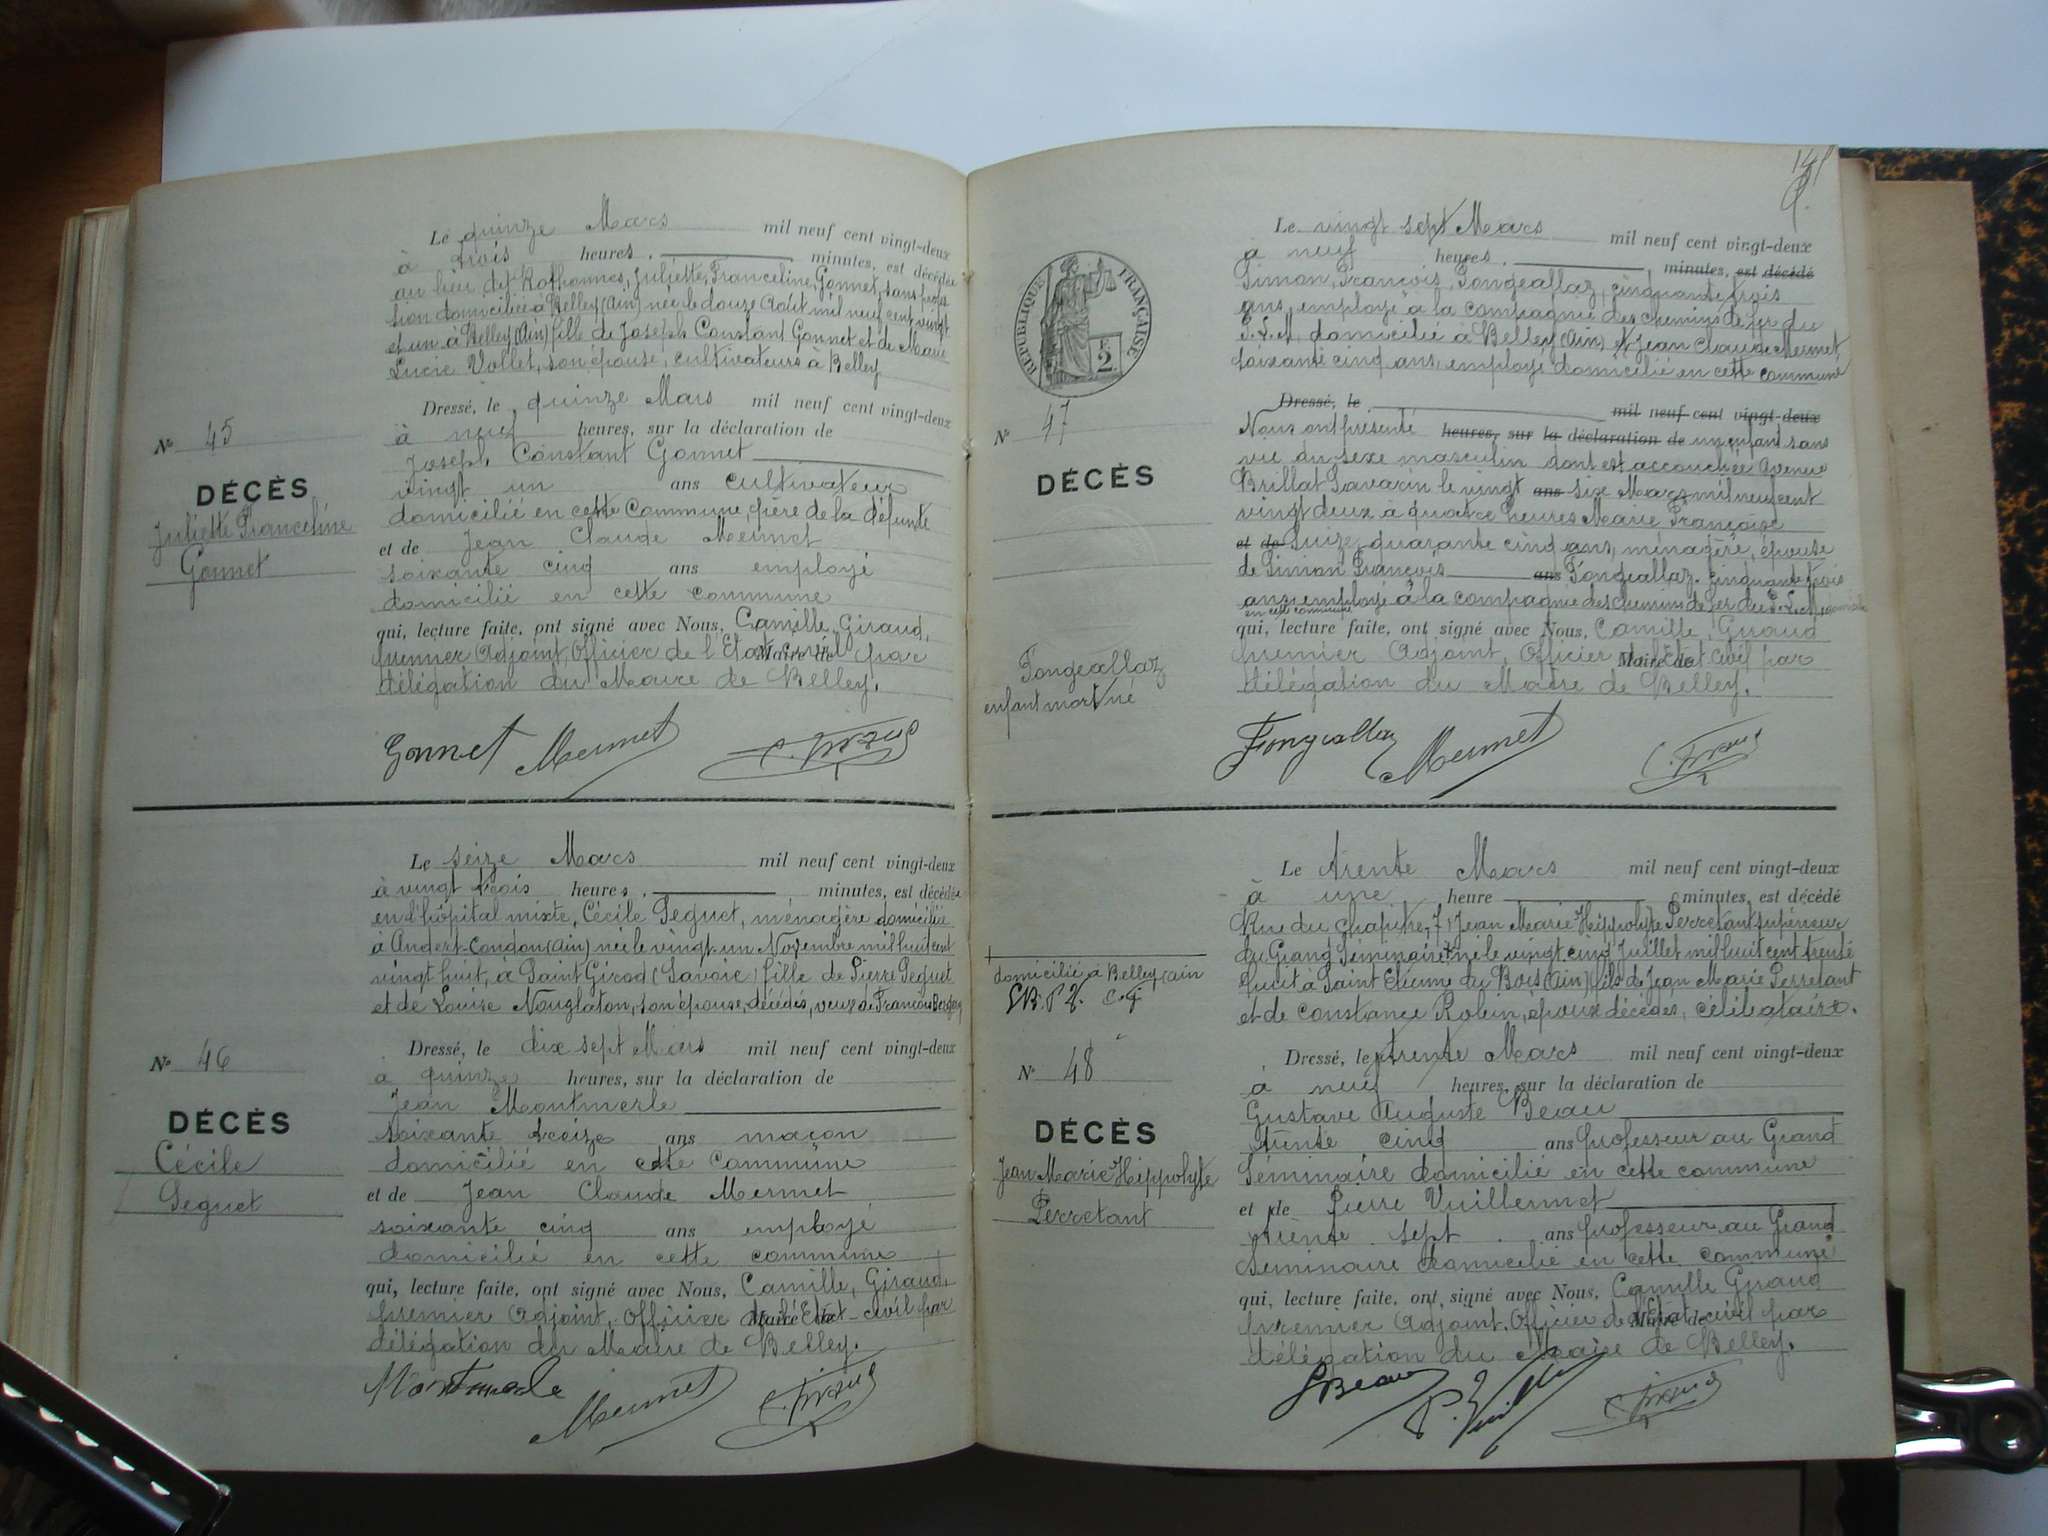 Le quinze Mars mil neuf cent vingt-deux
à trois heures, minutes, est décédée
au lieu dit Rothonnes, Juliette, Franceline, Gonnet, sans profes
sion domiciliée à Belley (Ain) née le douze Août mil neuf cent vingt
et un à Belley (Ain) fille de Joseph Constant Gonnet et de Marie
Lucie Vollet, son épouse, cultivateurs à Belley
Dressé, le quinze Mars mil neuf cent vingt-deux
à neuf heures, sur la déclaration de
Joseph Constant Gonnet
vingt un ans cultivateur
domicilié en cette commune, père de la défunte
et de Jean Claude Mermet
soixante cinq ans employé
domicilié en cette commune
qui, lecture faite, ont signé avec Nous, Camille, Giraud,
premier Adjoint, Officier de l'Etat civil par Maire de
délégation du Maire de Belley.
Gonnet Mermet C. Giraud
N° 45
DÉCÈS
Juliette Franceline
Gonnet
Le seize Mars mil neuf cent vingt-deux
à vingt trois heures, minutes, est décédée
en l'hôpital mixte, Cécile Peguet, ménagère domiciliée
à Andert-Condon (Ain) née le vingt-un Novembre mil huit cent
vingt huit, à Saint Girod (Savoie) fille de Pierre Peguet
et de Louise son épouse, décédés, veuve de François
Dressé, le dix sept Mars mil neuf cent vingt-deux
à quinze heures, sur la déclaration de
Jean Montmerle
soixante treize ans maçon
domicilié en cette commune
et de Jean Claude Mermet
soixante cinq ans employé
domicilié en cette commune
qui, lecture faite, ont signé avec Nous, Camille, Giraud
premier Adjoint, Officier de l'Etat-civil par Maire de
délégation du Maire de Belley.
Montmerle Mermet C. Giraud
N° 46
DÉCÈS
Cécile
Peguet
141
Le vingt sept Mars mil neuf cent vingt-deux
à neuf heures, minutes, est décédé
Simon, François, Fongeallaz, cinquante trois
ans, employé à la compagnie des chemins de fer du
P.L.M. domicilié à Belley (Ain) et Jean Claude Mermet,
soixante cinq ans, employé domicilié en cette commune
Dressé, le mil neuf cent vingt-deux
Nous ont présenté heures, sur la déclaration de un enfant sans
vie du sexe masculin dont est accouchée Avenue
Brillat Savarin le vingt ans six Mars mil neuf cent
vingt deux à quatre heures Marie Françoise
et de quarante cinq ans, ménagère, épouse
de Simon François ans Fongeallaz, cinquante trois
ans, employé à la compagnie des chemins de fer du P.L.M. domicilié
en cette commune
qui, lecture faite, ont signé avec Nous, Camille, Giraud
premier Adjoint, Officier de l'Etat civil par Maire de
délégation du Maire de Belley.
Fongeallaz Mermet C. Giraud
RÉPUBLIQUE FRANÇAISE
2 F
N° 47
DÉCÈS
Fongeallaz
enfant mort né
Le trente Mars mil neuf cent vingt-deux
à une heure minutes, est décédé
Rue du Chapitre, 7, Jean Marie Hippolyte Perretant supérieur
du Grand Séminaire né le vingt cinq Juillet mil huit cent trente
huit à Saint Etienne du Bois (Ain) fils de Jean Marie Perretant
et de Constance Robin, époux décédés, célibataire.
Dressé, le trente Mars mil neuf cent vingt-deux
à neuf heures, sur la déclaration de
Gustave Auguste Beau
trente cinq ans professeur au Grand
Seminaire domicilié en cette commune
et de Pierre Vuillermet
trente sept ans professeur au Grand
Seminaire domicilié en cette commune
qui, lecture faite, ont signé avec Nous, Camille Giraud
premier Adjoint, Officier de l'Etat civil par Maire de
délégation du Maire de Belley.
GBeau C. Giraud
domicilié à Belley (Ain
GB. P. V. C. G
N° 48
DÉCÈS
Jean Marie Hippolyte
Perretant